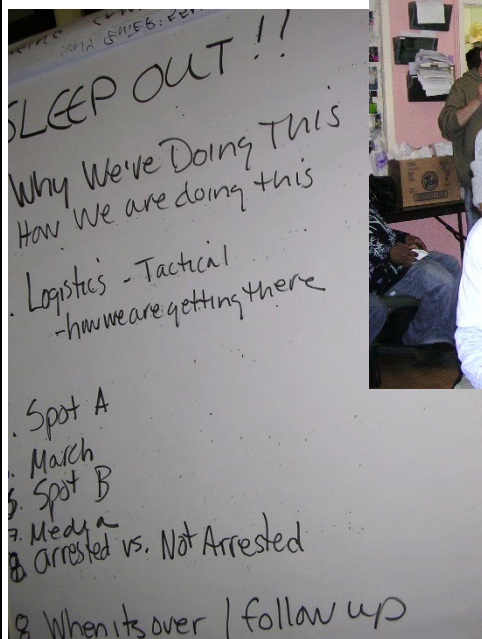 SLEEP OUT!!
Why We've Doing This
How We are doing this
. Logistics - Tactical
- how we are getting there
. Spot A
. March
6. Spot B
7. Media
8. arrested vs. Not Arrested
8 When its over / follow up